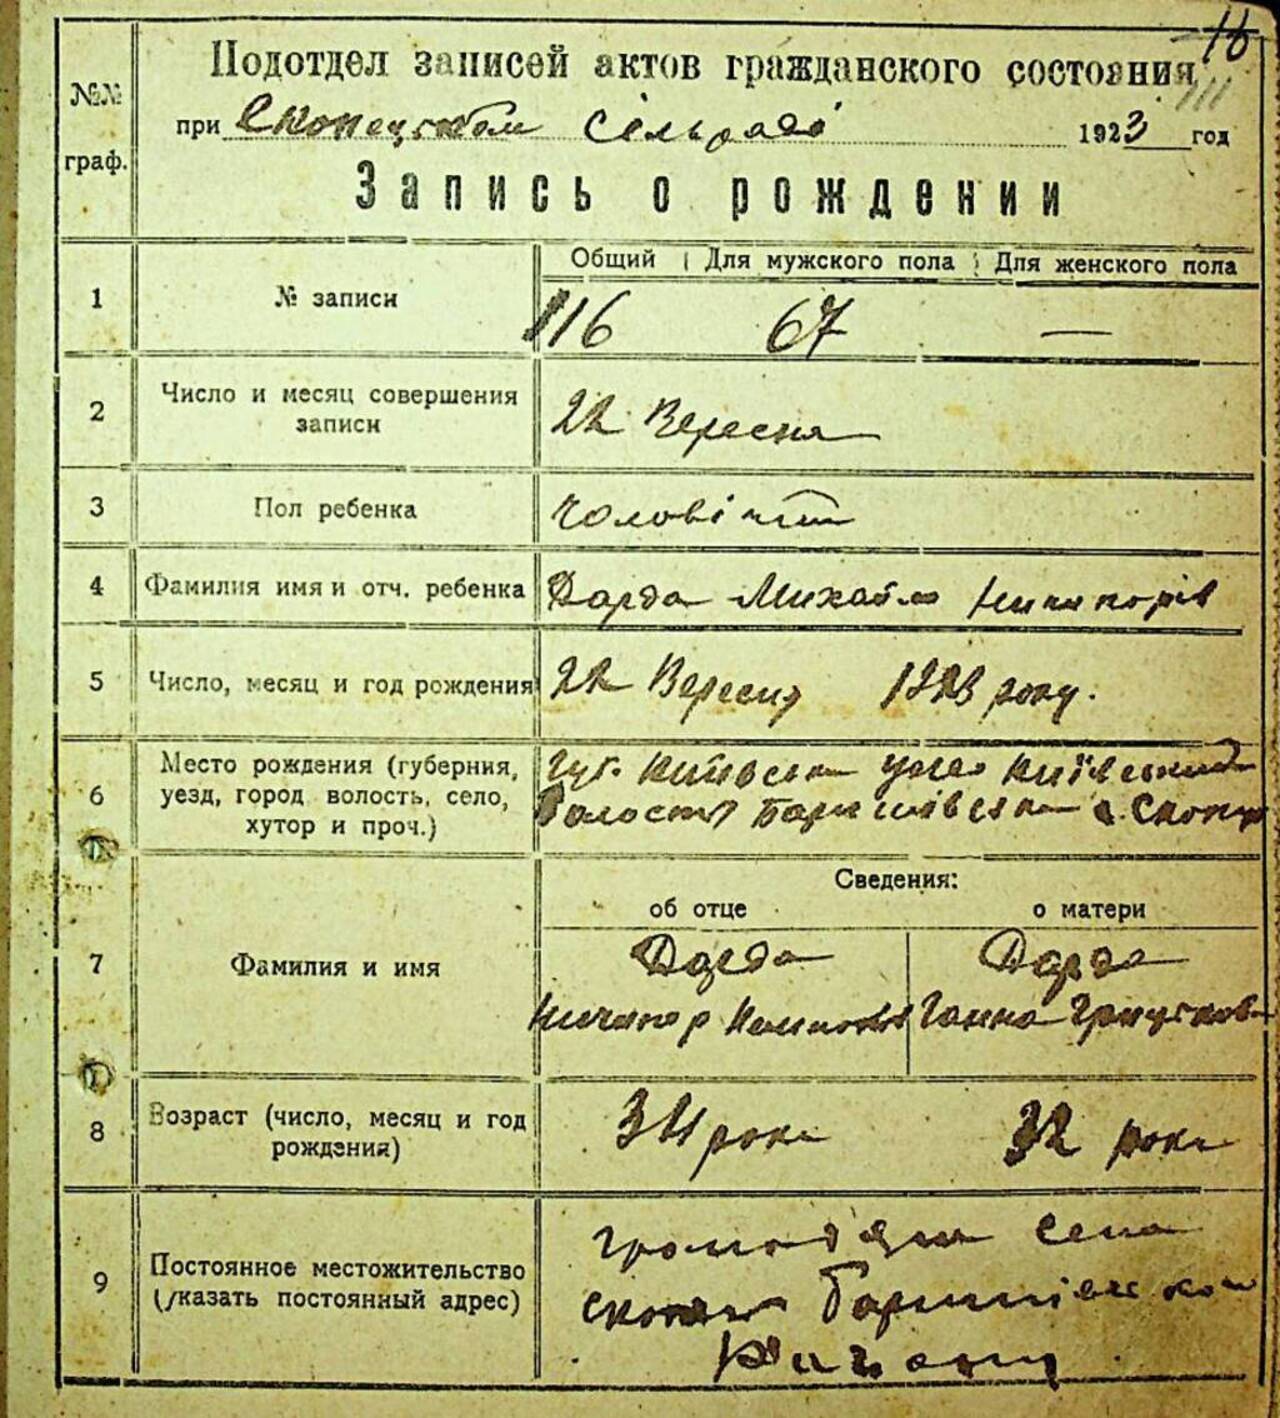 16
Подотдел записей актов гражданского состояния
111
№№ граф.
при Скопецském сільраді 1923 год
Запись о рождении
Общий Для мужского пола Для женского пола
1 № записи 116 67 —
2 Число и месяц совершения записи 22 Вересня
3 Пол ребенка чоловіч
4 Фамилия имя и отч. ребенка Дарда Михайло Ничипорів
5 Число, месяц и год рождения 22 Вересня 1923 року.
6 Место рождения (губерния, уезд, город волость, село, хутор и проч.) Губ. Київська Київський
Волость Баришівська с. Скопці
Сведения:
об отце о матери
7 Фамилия и имя Дарда Дарда
Ничипор Ганна
8 Возраст (число, месяц и год рождения) 34 роки 32 роки
9 Постоянное местожительство (указать постоянный адрес) громадяни села
Баришівського
Району